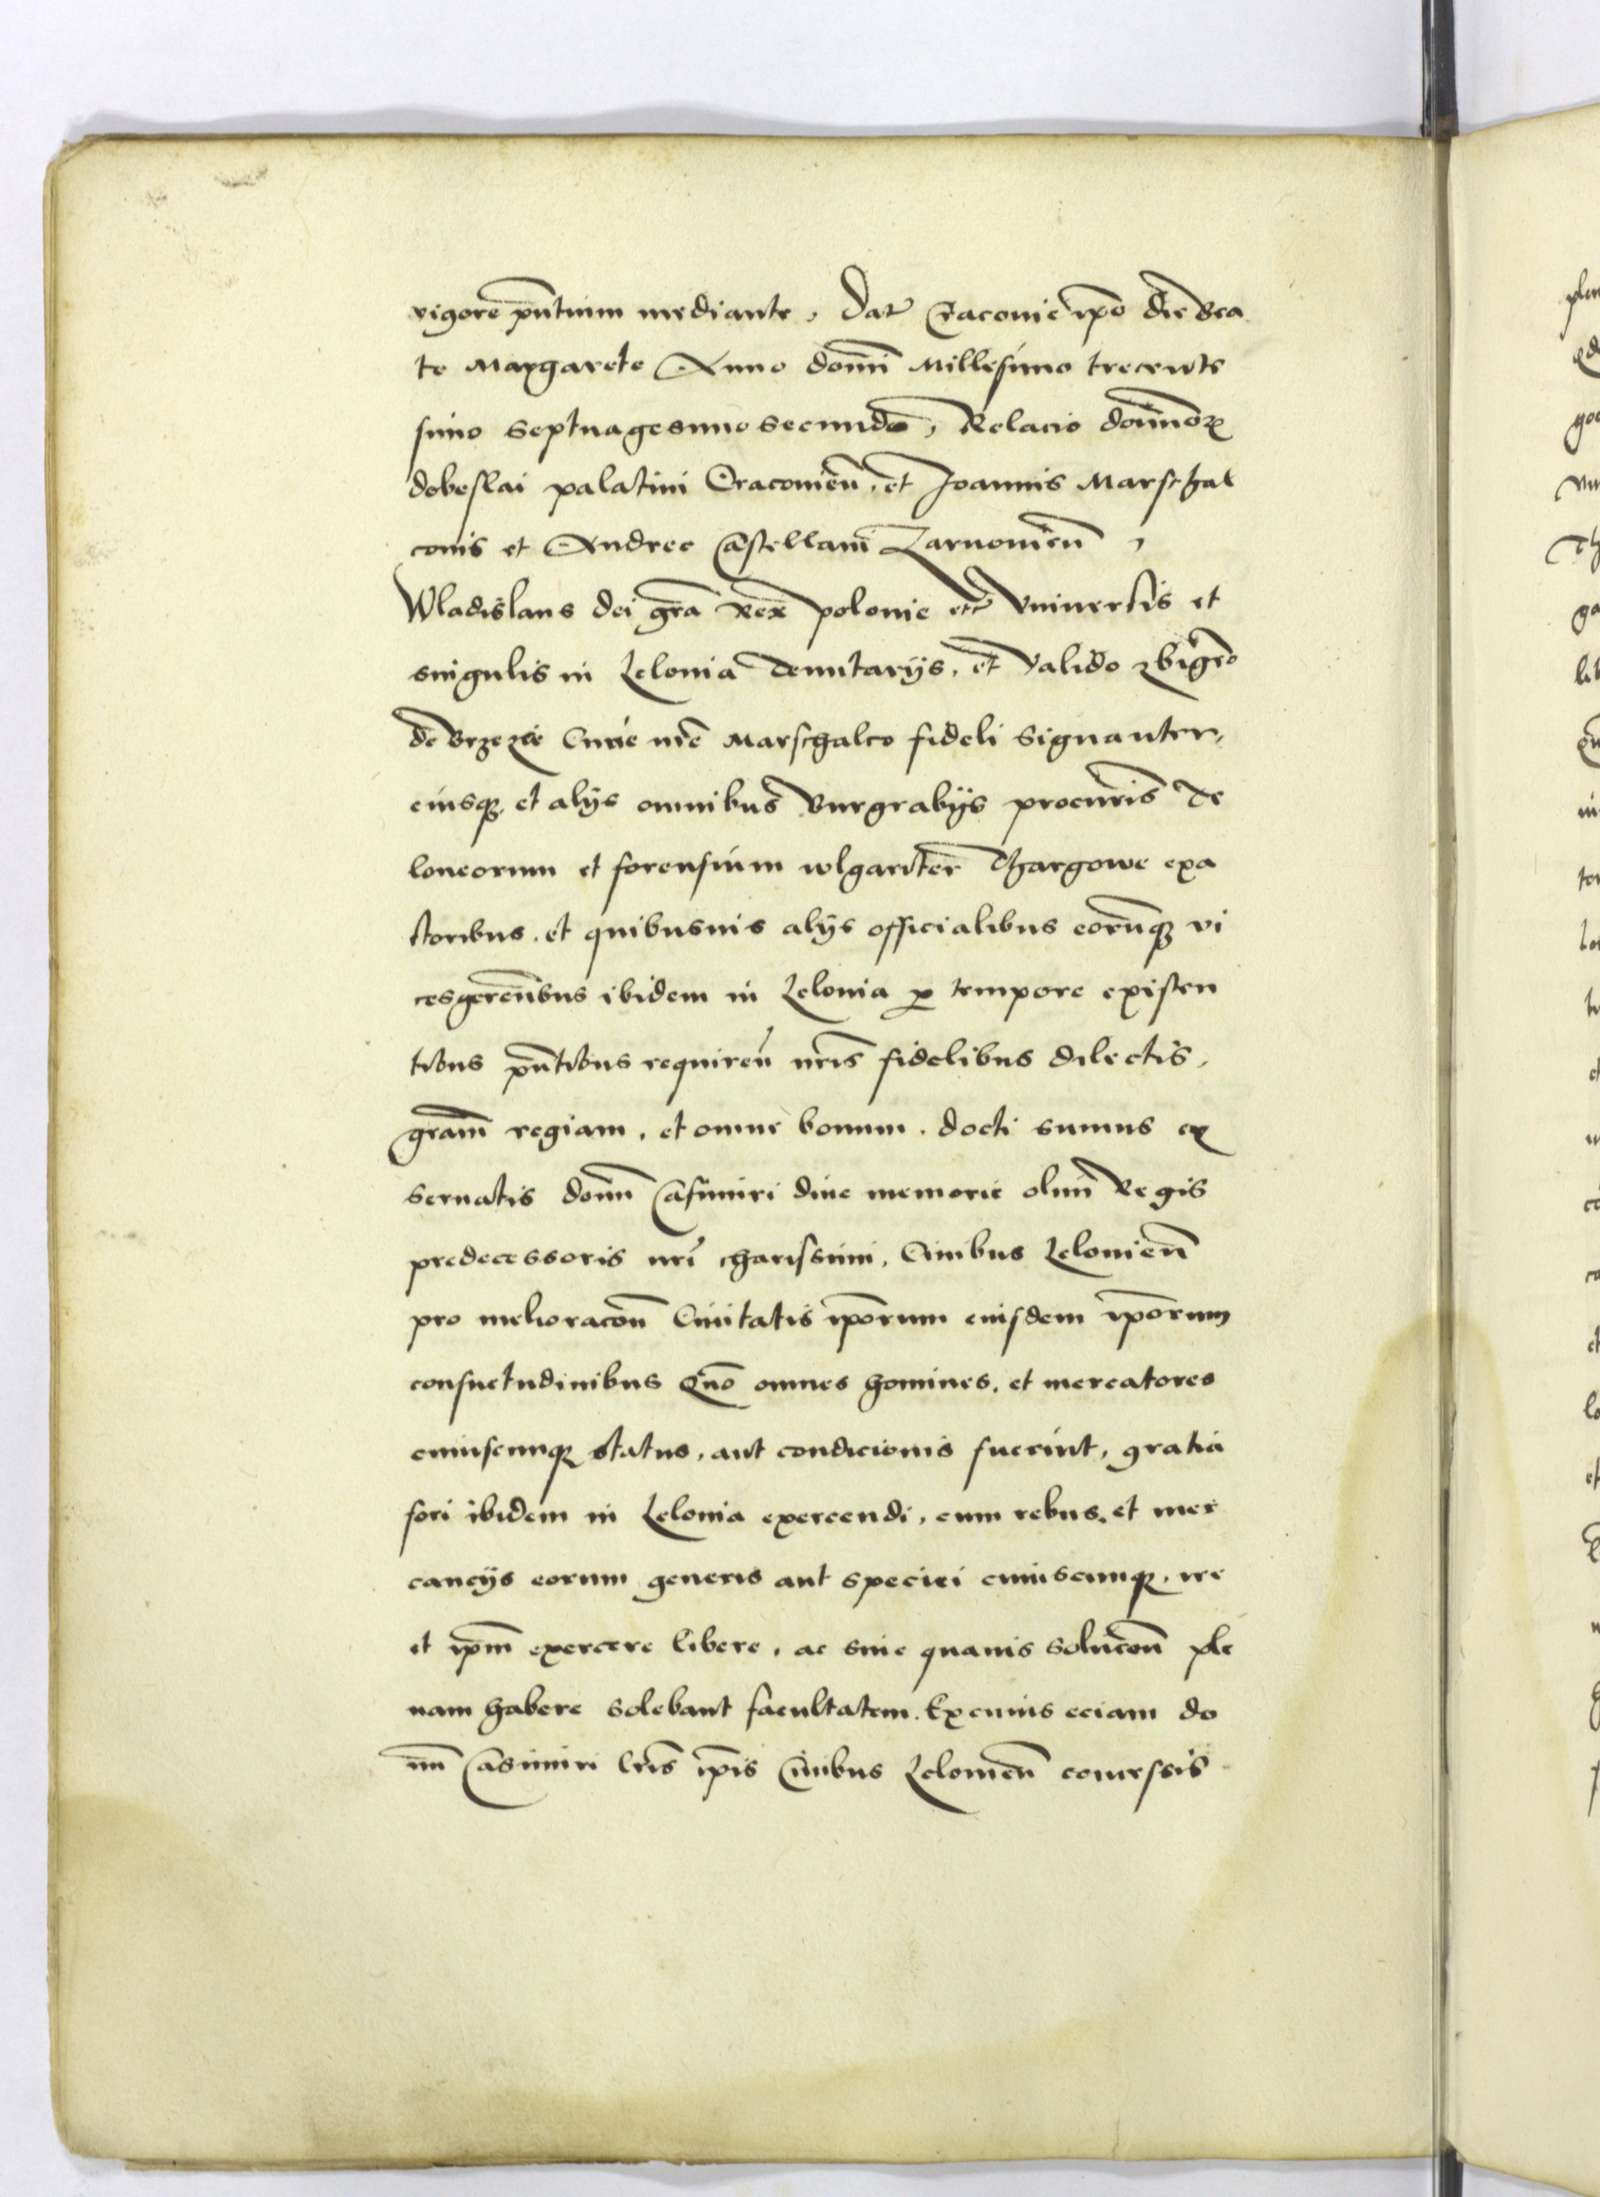 vigore pn̄tium mediante, Datᷣ Cracovie ip̄o die Bea
te Margarete Anno domī Millesimo trecente
simo septuagesimo secundo, Relacio domīoꝝ
dobeslai palatini Cracovien̄, et Joannis Marschal
conis et Andree Castellanī Zarnowien̄,
Wladislaus dei gr̄a Rex polonie etc̄ vniversis et
singulis in Lelovia tenutarijs, et valido zbig̅eo
de Brzezie Curie nr̄e Marschalco fideli signanter,
eiusqꝫ et alijs omnibus Burgrabijs procur̄is Te
loneorum et forensium wlgariter Thargowe exa
ctoribus, et quibusvis alijs officialibus eorūqꝫ vi
cesgeren̄bus ibidem in Lelovia ꝓ tempore existen
tibus pn̄tibus requiren̄ nr̄is fidelibus dilectis,
gr̄am regiam, et omne bonum. docti sumus ex
servatis domī Casimiri dive memorie olim Regis
predecessoris nr̄i charissimi, Civibus Lelovien̄
pro melioracōn Civitatis ip̄orum eiusdem ip̄orum
consuetudinibus Quō omnes homines, et mercatores
cuiuscunqꝫ status, aut condicionis fuerint, gratia
fori ibidem in Lelovia exercendi, cum rebus, et mer
cancijs eorum generis aut speciei cuiuscunqꝫ, ire
et ip̄m exercere libere, ac sine quavis solucōn ple
nam habere solebant facultatem. Ex cuius eciam do
mī Casimiri lr̄is ip̄is Civibus Lelovien̄ concessis